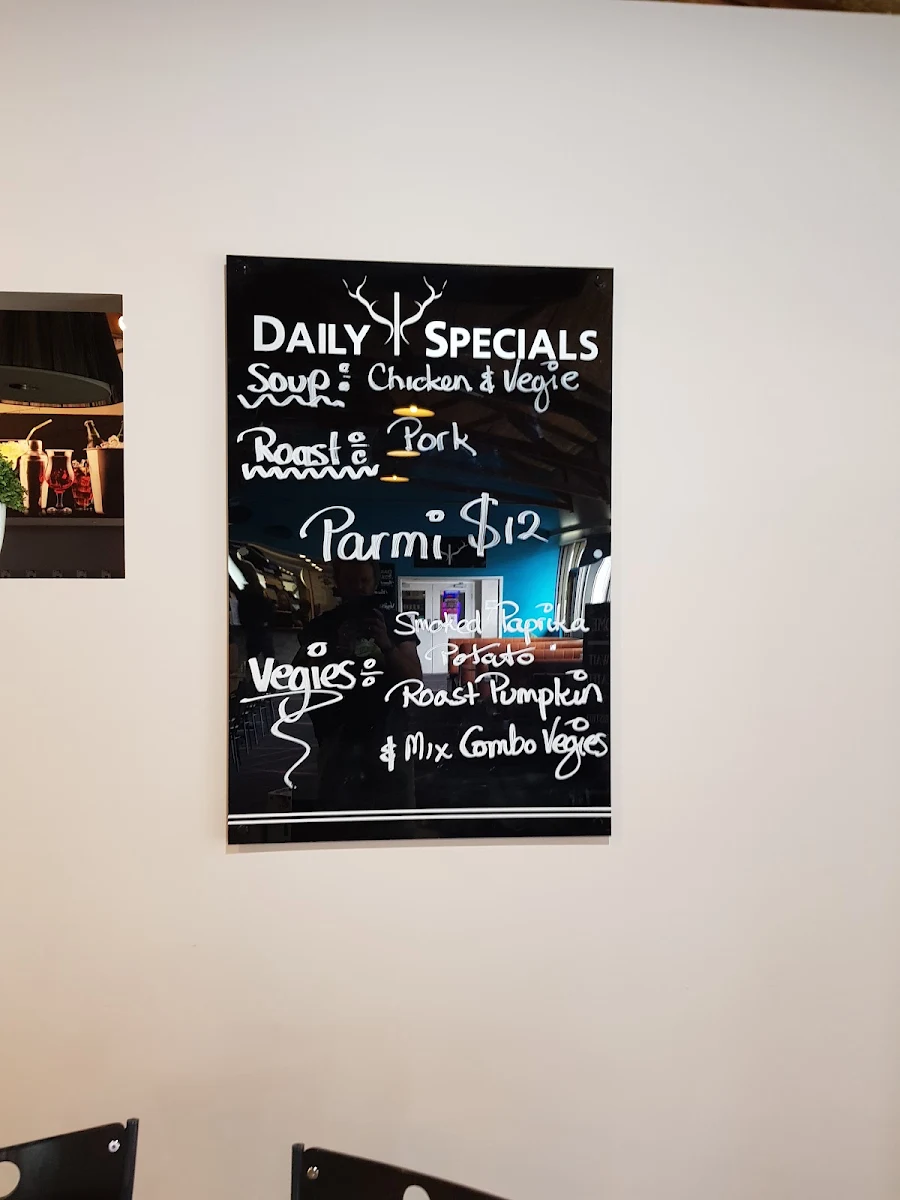 DAILY SPECIALS
Soup: Chicken & Vegie
Roast: Pork
Parmi $12
Vegies:
Smoked Paprika
Potato
Roast Pumpkin
& Mix Combo Vegies